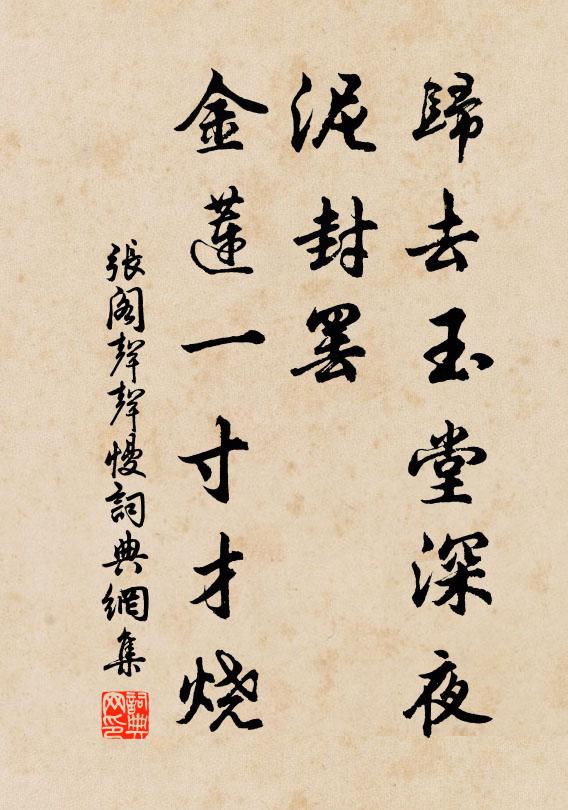 歸去玉堂深夜
泥封罢
金蓮一寸才燒
張閣聲聲慢詞典網集
詞典网印